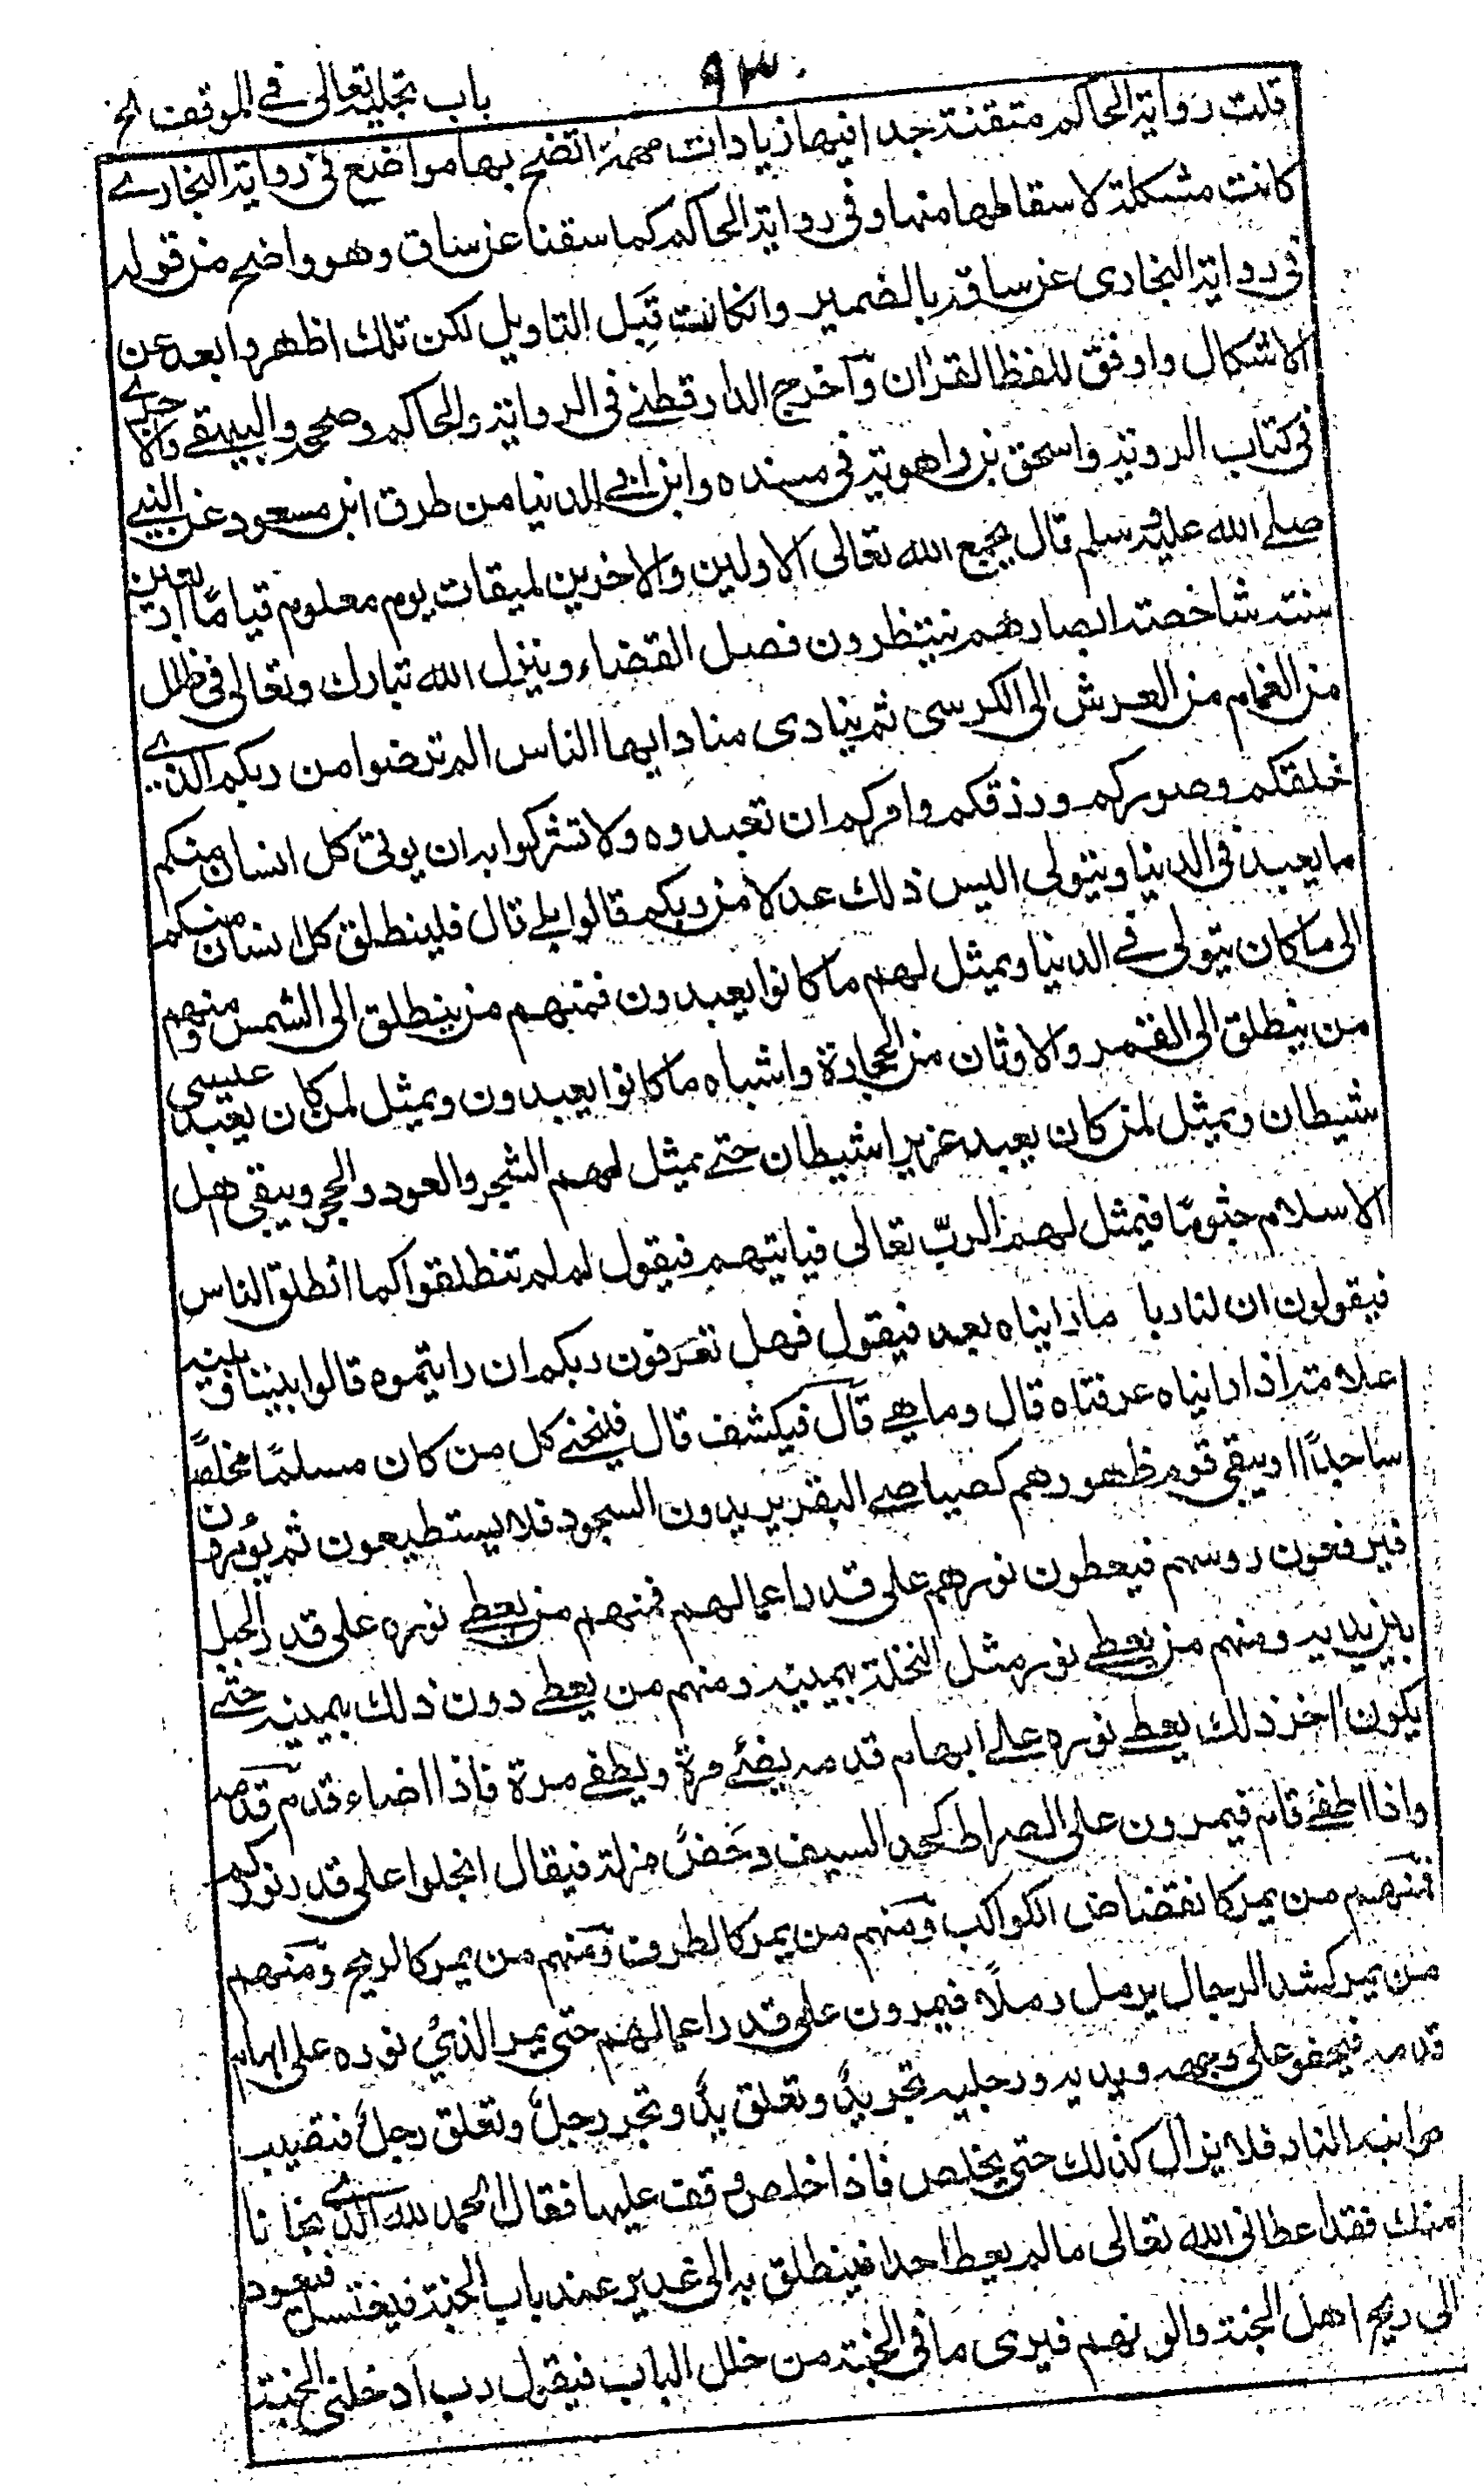 ٩٣
باب تجليه تعالى في الموقف الخ
قلت رواية الحاكم متقنة جدا فيها زيادات مهمة اتضح بها مواضع في رواية البخاري
كانت مشكلة لاسقاطها منها وفي رواية الحاكم كما سقنا عن ساق وهو واضح من قوله
في رواية البخارى عن ساقه بالضمير وان كانت تقبل التاويل لكن تلك اظهر وابعد عن
الاشكال واوفق للفظ القران وآخرج الدارقطني في الروية والحاكم وصححه والبيهقي والاجرى
في كتاب الروية واسحق بن راهويه في مسنده وابن ابي الدنيا من طرق ابن مسعود عن النبي
صلى الله عليه وسلم قال يجمع الله تعالى الاولين والاخرين لميقات يوم معلوم قياما اربعين
سنة شاخصة ابصارهم ينتظرون فصل القضاء وينزل الله تبارك وتعالى في ظلل
من الغمام من العرش الى الكرسى ثم ينادى مناد ايها الناس الم ترضوا من ربكم الذي
خلقكم وصوركم ورزقكم وامركم ان تعبدوه ولا تشركوا به ان يولى كل انسان منكم
ما يعبد في الدنيا ويتولى اليس ذلك عدلا من ربكم قالوا بلى قال فلينطلق كل انسان منكم
الى ما كان يتولى في الدنيا ويمثل لهم ما كانوا يعبدون فمنهم من ينطلق الى الشمس ومنهم
من ينطلق الى القمر والاوثان من الحجارة واشباه ما كانوا يعبدون ويمثل لمن كان يعبد عيسى
شيطان ويمثل لمن كان يعبد عزيرا شيطان حتى يمثل لهم الشجر والعود والحجر ويبقى اهل
الاسلام جثوما فيتمثل لهم الربّ تعالى فياتيهم فيقول لم لم تنطلقوا كما انطلق الناس
فيقولون ان لنا ربا ما راينا ه بعد فيقول فهل تعرفون ربكم ان رايتموه قالوا بيننا وبينه
علامة اذا راينا ه عرفناه قال وما هي قآل فيكشف قال فينحني كل من كان مسلما مخلصا
ساجدًا ويبقى قوم ظهورهم كصياصي البقر يريدون السجود فلا يستطيعون ثم يؤمرون
فيرفعون روسهم فيعطون نورهم على قدر اعمالهم فمنهم من يعطى نوره على قدر الجبل
بين يديه ومنهم من يعطى نوره مثل النخلة بيمينه ومنهم من يعطى دون ذلك بيمينه حتى
يكون اخر ذلك يعطى نوره على ابهام قدمه يضئ مرة ويطفى مرة فاذا اضاء قدم قدمه
واذا اطفئ قام فيمرون على الصراط كحد السيف دحض مزلة فيقال انجلوا على قدر نوركم
فمنهم من يمر كانقضاض الكواكب ومنهم من يمر كالطرف ومنهم من يمر كالريح ومنهم
من يمر كشد الرجال يرمل رملا فيمرون على قدر اعمالهم حتى يمر الذي نوره على ابهام
قدمه فيحفو على وجهه ويديه ورجليه تجر يدٌ وتعلق يدٌ وتجر رجلٌ وتعلق رجلٌ فتصيب
جوانبه النار فلا يزال كذلك حتى يخلص فاذا خلص وقف عليها فقال الحمد لله الذي نجانا
منك فقد اعطانى الله تعالى ما لم يعط احدا فينطلق به الى غدير عند باب الجنة فيغتسل فيعود
الى ريح اهل الجنة والوانهم فيرى ما في الجنة من خلل الباب فيقول رب ادخلنى الجنة